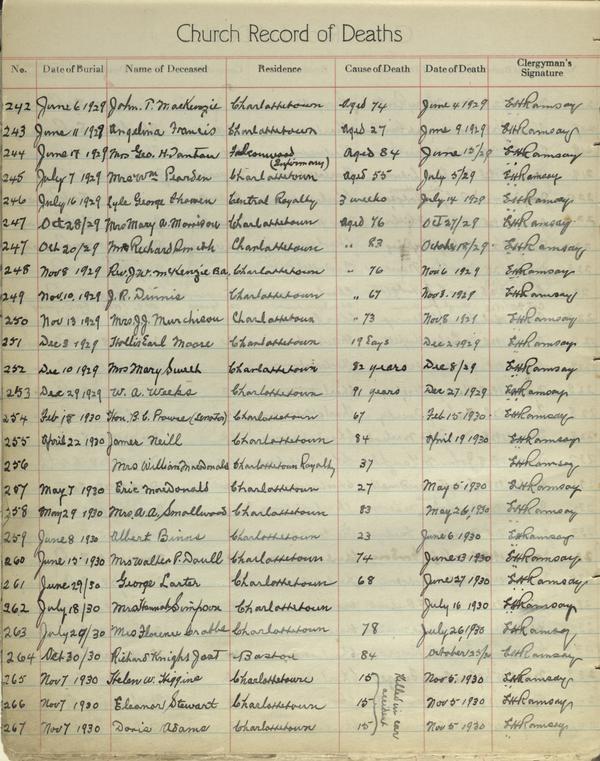 Church Record of Deaths
No. Date of Burial Name of Deceased Residence Cause of Death Date of Death Clergyman's Signature
242 June 6 1929 John. T. MacKenzie Charlottetown Aged 74 June 4 1929 EHRamsay
243 June 11 1929 Angelina Francis Charlottetown Aged 27 June 9 1929 EHRamsay
244 June 17 1929 Mrs Geo. H. Falconwood (Infirmary) Aged 84 June 15/29 EHRamsay
245 July 7 1929 Mrs Wm Pearden Charlottetown Aged 55 July 5/29 EHRamsay
246 July 16 1929 Lyle George Central Royalty 3 weeks July 14 1929 EHRamsay
247 Oct 28/29 Mrs Mary A. Morrison Charlottetown Aged 76 Oct 27/29 EHRamsay
247 Oct 20/29 Mrs Richard Smith Charlottetown " 83 October 18/29 EHRamsay
248 Nov 8 1929 Rev J.W. McKenzie Ba Charlottetown " 76 Nov 6 1929 EHRamsay
249 Nov. 10. 1929 J. R. Dinnis Charlottetown " 67 Nov 8. 1929 EHRamsay
250 Nov 13 1929 Mrs J.J. Murchison Charlottetown " 73 Nov 1929 EHRamsay
251 Dec 3 1929 Hollis Earl Moore Charlottetown 19 Dec 2 1929 EHRamsay
252 Dec 10 1929 Mrs Mary Charlottetown 82 years Dec 8/29 EHRamsay
253 Dec 29 1929 W. A. Weeks Charlottetown 91 years Dec 27 1929 EHRamsay
254 Feb 18 1930 Hon. B. C. Prowse (Senator) Charlottetown 67 Feb 15 1930 EHRamsay
255 April 22 1930 James Neill Charlottetown 84 April 19 1930 EHRamsay
256 Mrs William MacDonald Charlottetown Royalty 37 EHRamsay
257 May 7 1930 Eric MacDonald Charlottetown 27 May 5 1930 EHRamsay
258 May 29 1930 Mrs. A. A. Smallwood Charlottetown 83 May 26, 1930 EHRamsay
259 June 8 1930 Albert Binns Charlottetown 23 June 6 1930 EHRamsay
260 June 15 1930 Mrs Walter P. Doull Charlottetown 74 June 13 1930 EHRamsay
261 June 29/30 George Larter Charlottetown 68 June 27 1930 EHRamsay
262 July 18/30 Mrs Hannah Simpson Charlottetown July 16 1930 EHRamsay
263 July 29/30 Mrs Florence Crabbe Charlottetown 78 July 26 1930 EHRamsay
264 Oct 30/30 Richard Knight Jost Boston 84 October EHRamsay
265 Nov 7 1930 Helen W. Higgins Charlottetown 15 Killed in car accident Nov 5. 1930 EHRamsay
266 Nov 7 1930 Eleanor Stewart Charlottetown 15 Nov 5 1930 EHRamsay
267 Nov 7 1930 Doris Adams Charlottetown 15 Nov 5 1930 EHRamsay